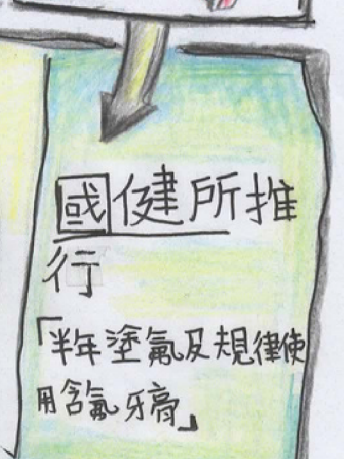 國健所推
行
「半年塗氟及規律使
用含氟牙膏」